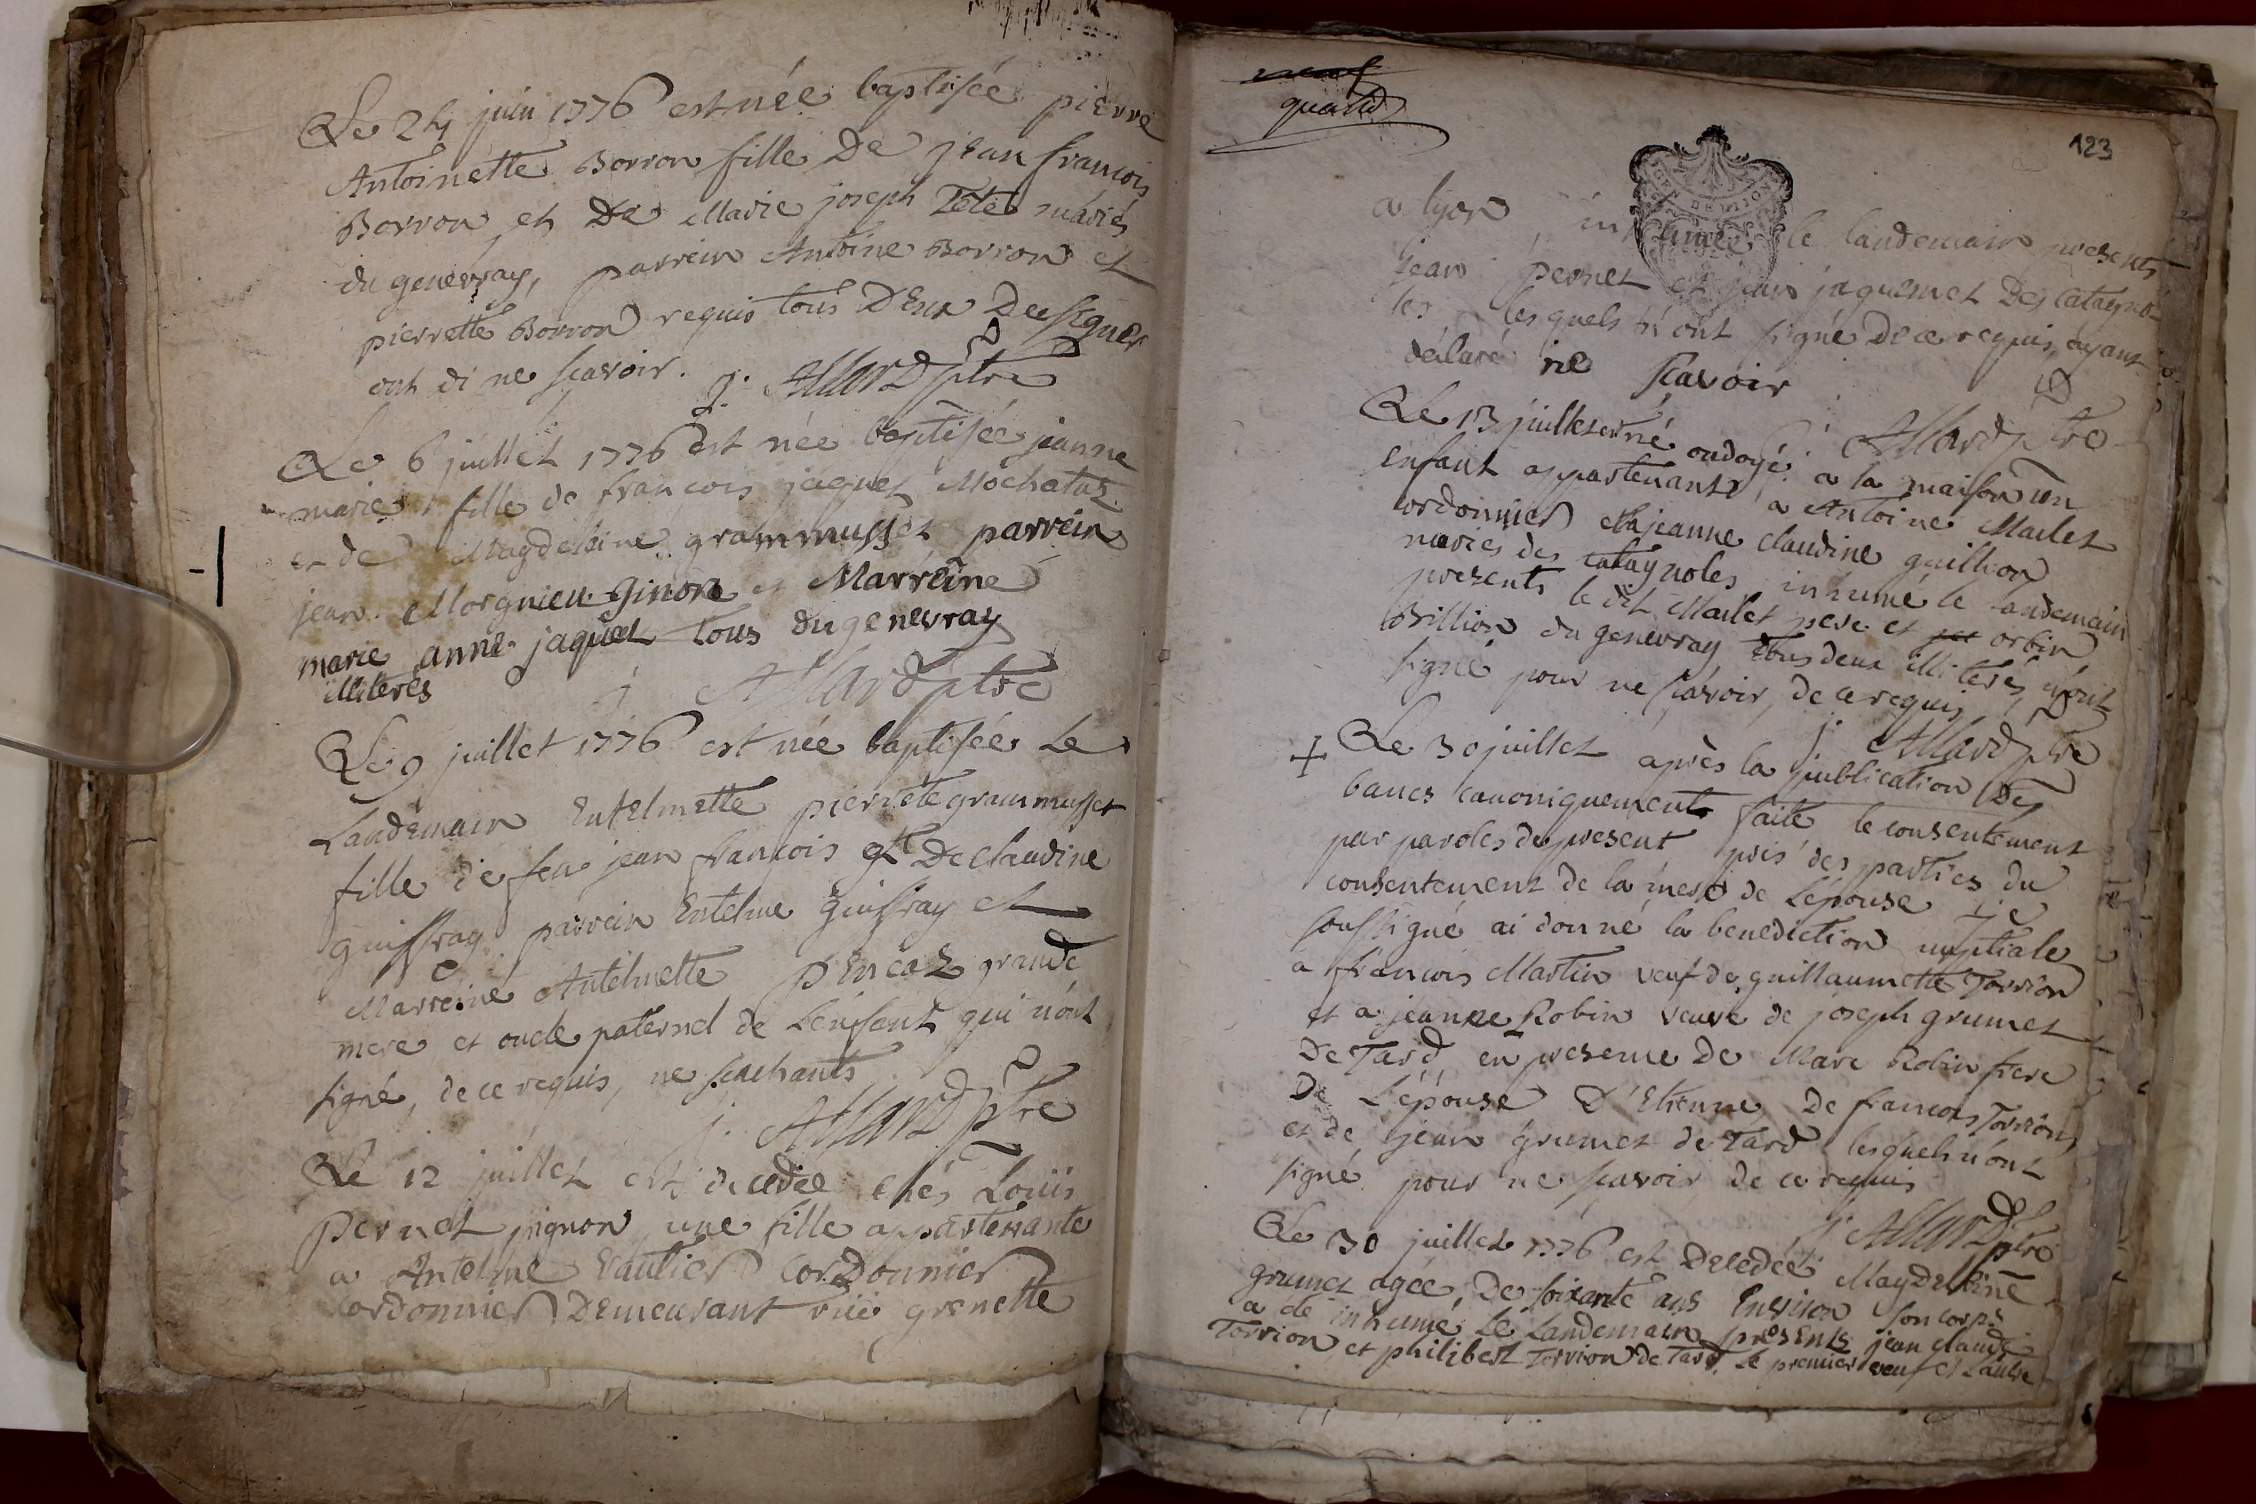 Le 24 juin 1776 est née baptisée pierre
Antoinette Borron fille De jean francois
Borron et De Marie joseph Tété mariés
du genevray, parrein Antoine Borron et
pierrette Borron requis tous Deux De signer
ont di ne scavoir. j. Allard ptre
Le 6 juillet 1776 est née baptisée jeanne
marie, fille de francois jaquet Mochataz
et de Magdeleine grammusset parrein
jean Morgnieu ginon et Marreine
marie anne jaquet tous du genevray
illiterés j Allard ptre
Le 9 juillet 1776 est née baptisée Le
Landemain Entelmette pierrete grammusset
fille de feu jean francois et De claudine
guiffray parrein Entelme guiffray et
Marreine Antelmette pencaz grande
mere et oncle paternel de L'enfent qui n'ont
signé, de ce requis, ne scachants
j. Allard ptre
Le 12 juillet est decedée chés Louis
Pernet pignon une fille appartenante
a Antelme Vautier Cordonnier
cordonnier Demeurant rüe grenette
neuf
quatid
123
a lyon, inhumée le landemain presents
jean pernet et jean jaquemet Des catagno-
les lesquels n'ont signé de ce requis, ayant
déclaré ne scavoir
j. Allard ptre
Le 13 juillet est né ondoyé a la maison un
enfant appartenant a Antoine Mailet
cordonnier et a jeanne claudine guillion
mariés des catagnoles, inhumé le landemain
presents le dit Mailet pere et orbin
Billion du genevray tous deux illiterés, n'ont
signé pour ne scavoir, de ce requis
j. Allard ptre
+ Le 30 juillet après la publication Des
bancs canoniquement faite le consentement
par paroles de present pris des parties du
consentement de la mere de L'épouse je
soussigné ai donné la benediction nuptiale
a francois Martin veuf de guillaumette Torrion
et a jeanne Robin veuve de joseph grumet
De Tard, en presence De Marc Robin frere
De L'épouse D'Etienne, de francois Torrion,
et de jean grumet de Tard lesquels n'ont
signé pour ne scavoir de ce requis
j. Allard ptre
Le 30 juillet 1776 est Decedée Magdeleine
grumet agée, De soixante ans Environ son corps
a été inhumé Le Landemain, presents jean claude
Torrion et philibert Torrion de Tard. Le premier veuf et L'autre